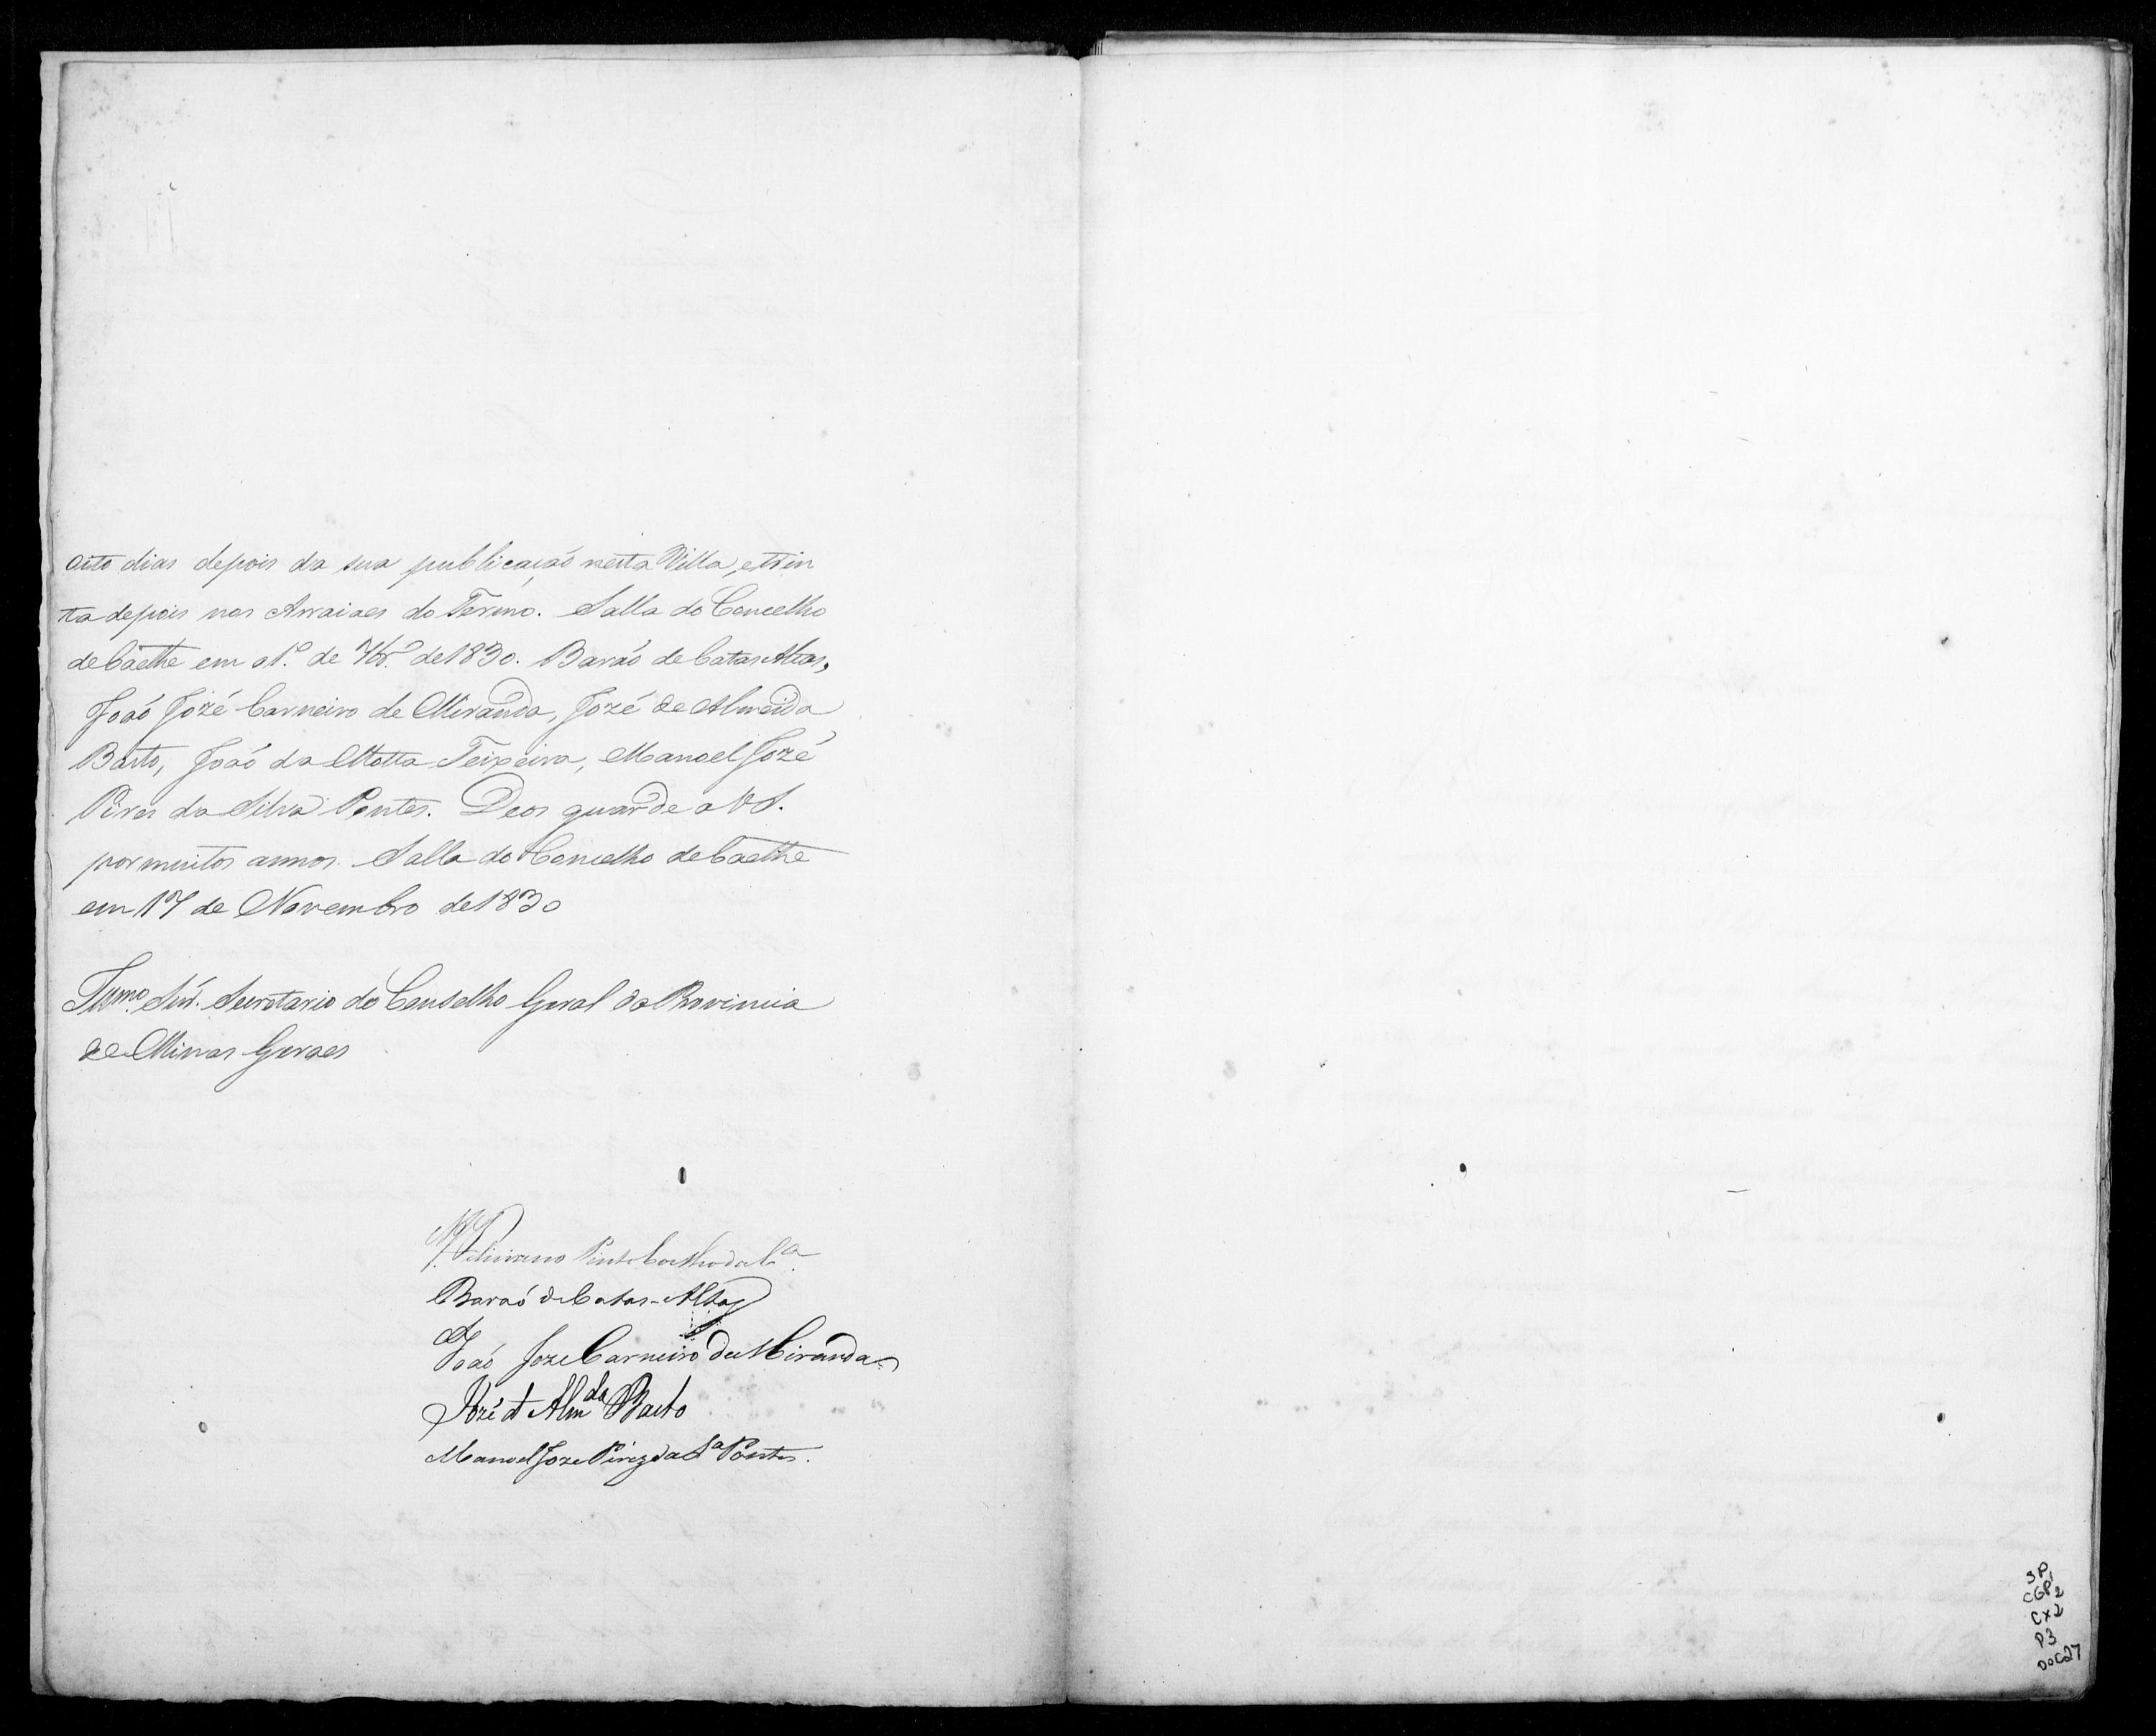 oito dias depois da sua publicação nesta Villa, e trin
ta depois nos Arraiaes do Termo. Salla do Concelho
de Caethe em o 1.º de 7br.º de 1830. Barão de Catas Altas,
João Jozé Carneiro de Miranda, Jozé de Almeida
Barto, João da Motta Teixeira, Manoel Jozé
Pires da Silva Pontes. Deos guarde a V S.
por muitos annos. Salla do Concelho de Caethe
em 17 de Novembro de 1830
Illmo. Snr. Secretario do Conselho Geral da Provincia
de Minas Geraes
Pinto Coelho da C.ª
Barão de Catas-Altas
João Joze Carneiro de Miranda
Jozé d' Almda Barto
Manoel Joze Pires da S.ª Pontes.
SP
CGP1 2
CX2
P3
DOC27